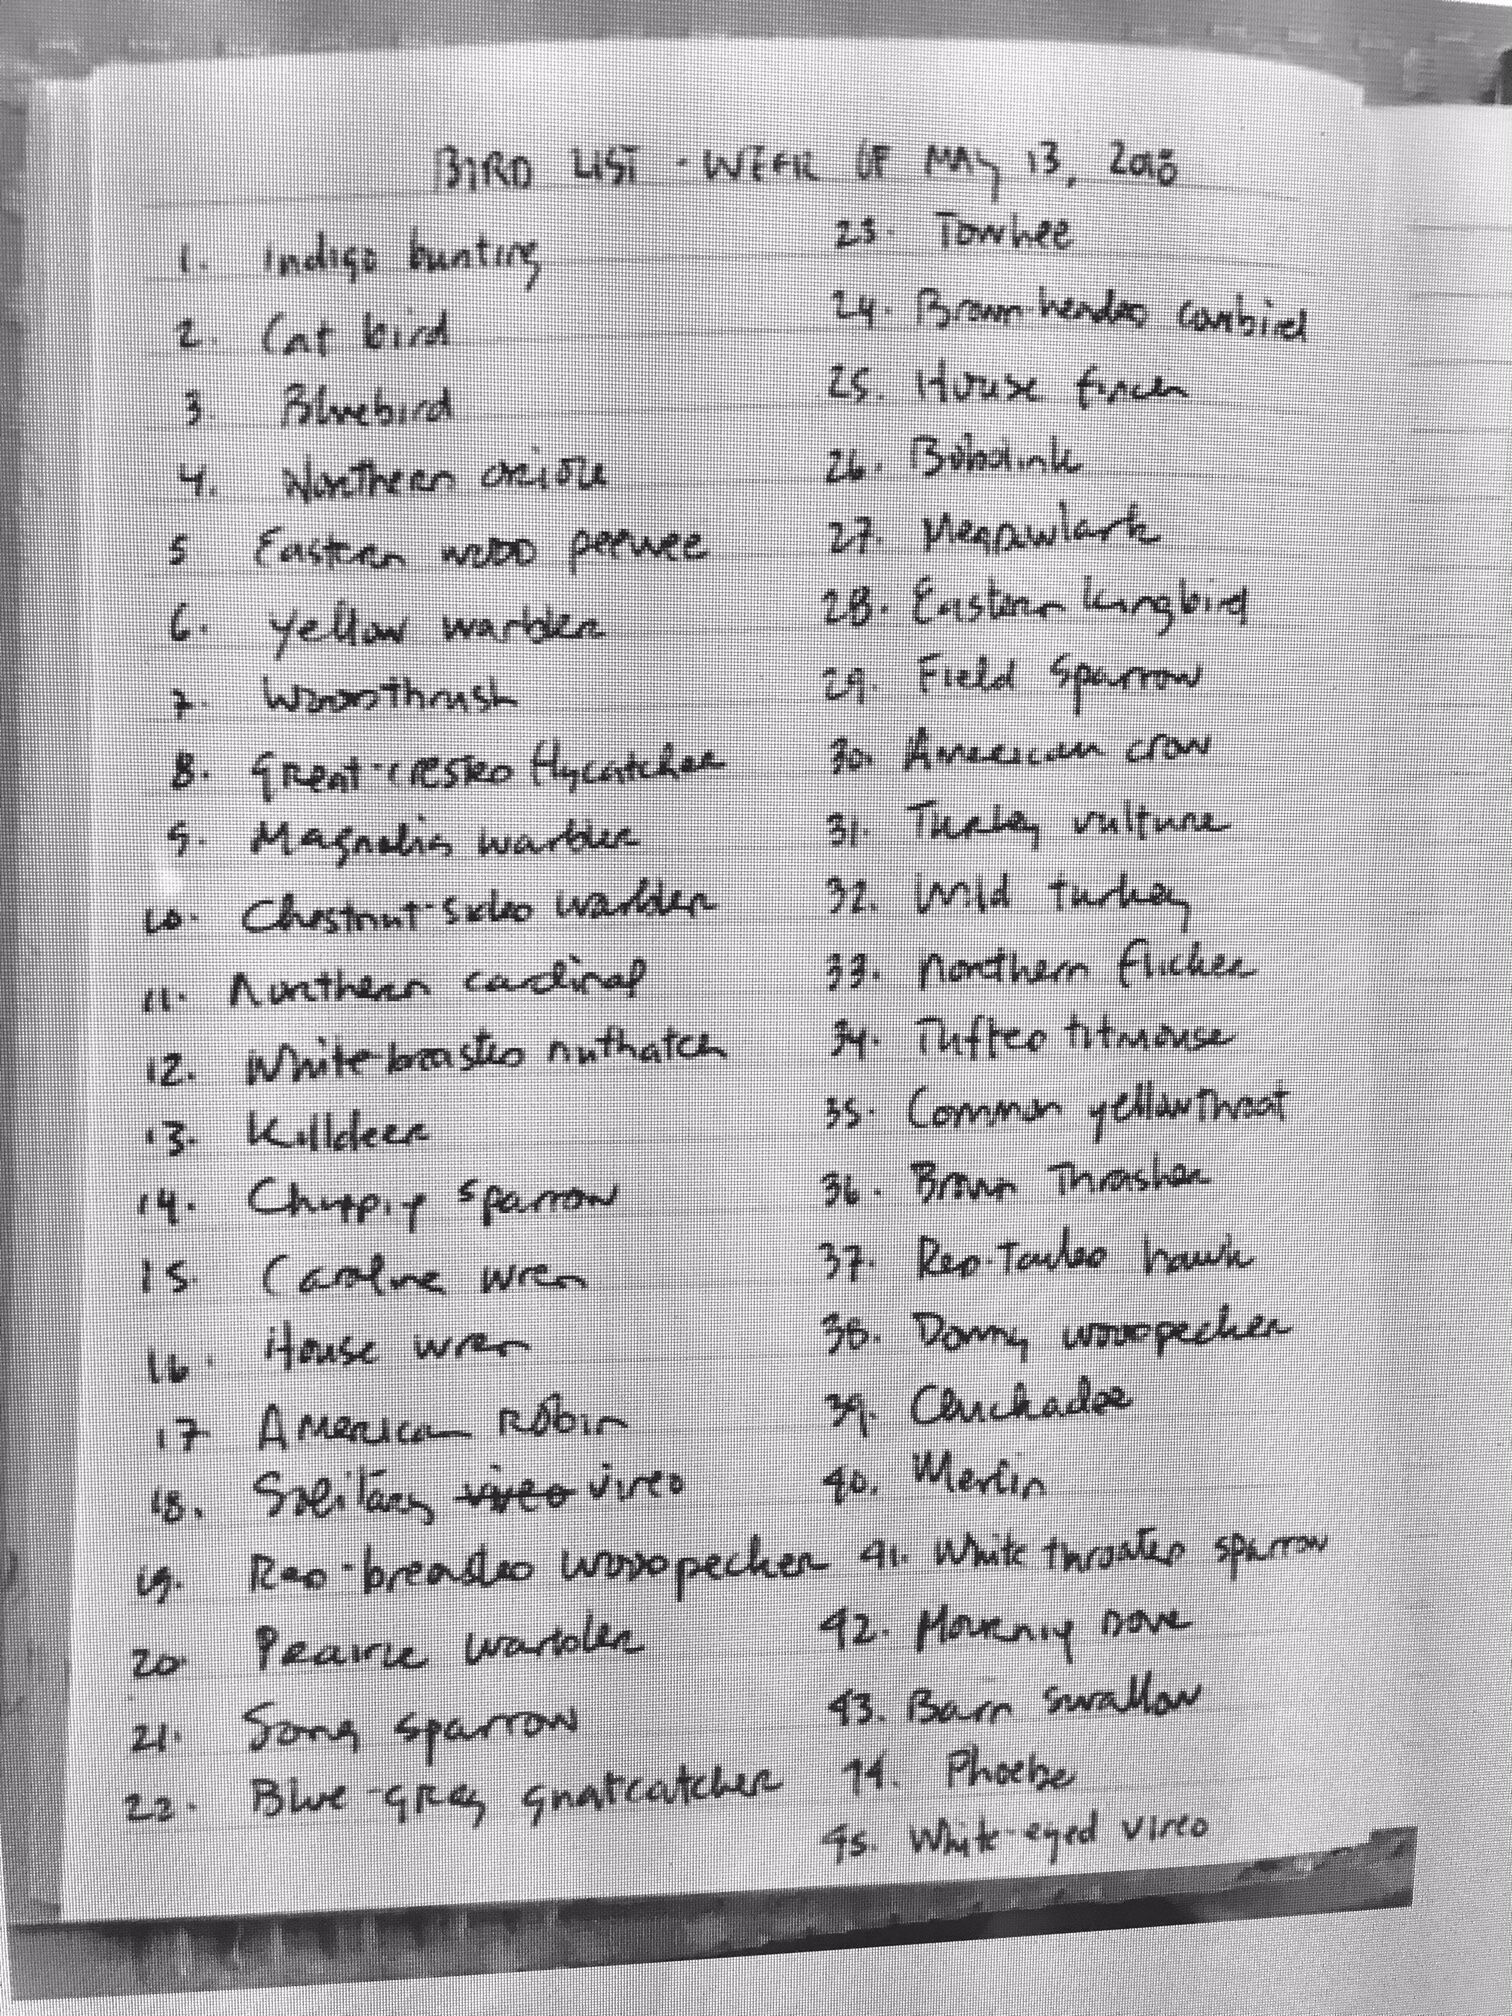 BIRD LIST - WEEK OF MAY 13, 2018
1. Indigo bunting
2. Cat bird
3. Bluebird
4. Northern oriole
5 Eastern wood peewee
6. Yellow warbler
7. Woodthrush
8. Great-crested flycatcher
9. Magnolia warbler
10. Chestnut-sided warbler
11. Northern cardinal
12. White-breasted nuthatch
13. Killdeer
14. Chipping sparrow
15. Caroline wren
16. House wren
17 American Robin
18. Solitary vireo vireo
19. Red-breasted woodpecker
20 Prairie warbler
21. Song sparrow
22. Blue-gray gnatcatcher
23. Towhee
24. Brown-headed cowbird
25. House finch
26. Bobolink
27. Meadowlark
28. Eastern Kingbird
29. Field sparrow
30. American crow
31. Turkey vulture
32. Wild turkey
33. Northern flicker
34. Tufted titmouse
35. Common yellowthroat
36. Brown Thrasher
37. Red-Tailed hawk
38. Downy woodpecker
39. Chickadee
40. Merlin
41. White throated sparrow
42. Mourning Dove
43. Barn swallow
44. Phoebe
45. White-eyed vireo